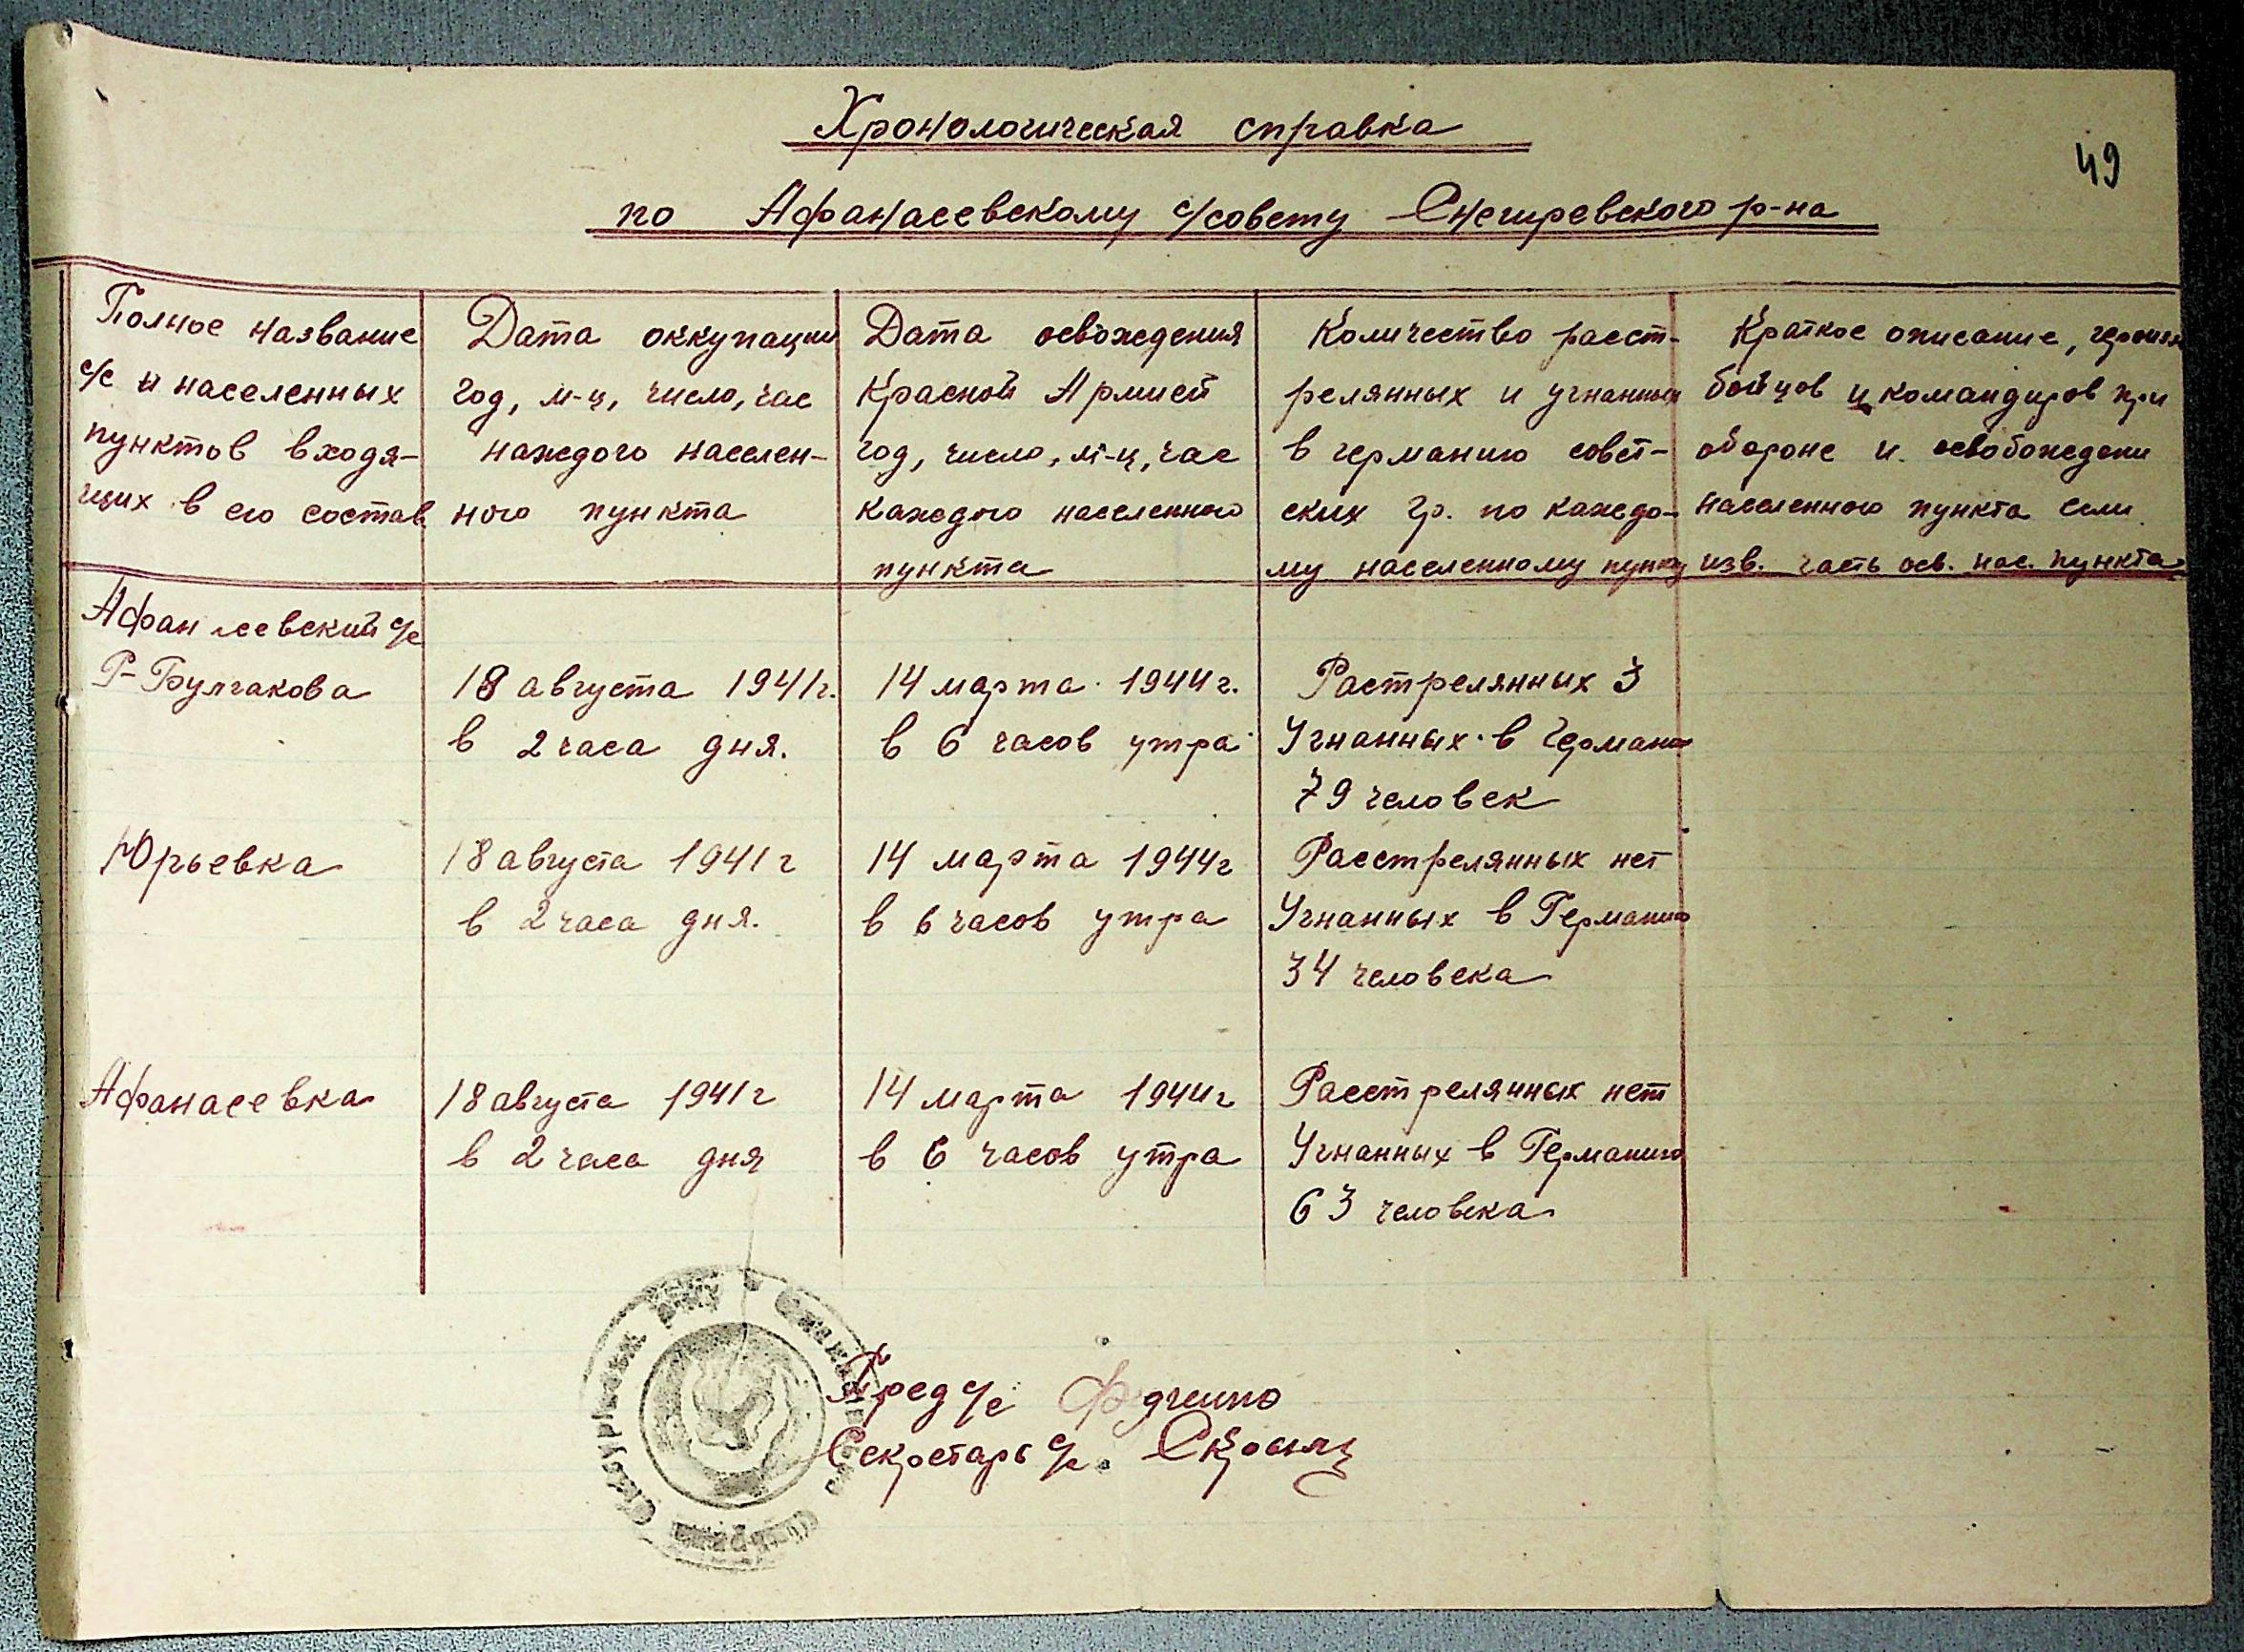 49
Хронологическая справка
по Афанасевскому с/совету Снегиревского р-на
Полное название
с/с и населенных
пунктов входя-
щих в его состав
Дата оккупации
год, м-ц, число, час
каждого населен-
ного пункта
Дата освождения
Красной Армией
год, число, м-ц, час
каждого населенного
пункта
Количество расст-
релянных и угнанных
в германию совет-
ских гр. по каждо-
му населенному пункту
Краткое описание, героизм
бойцов и командиров при
обороне и освобождени
населенного пункта если
изв. часть осв. нас. пункта
Афанасевский с/с
Р-Булгакова
18 августа 1941г.
в 2 часа дня.
14 марта 1944г.
в 6 часов утра
Растрелянных 3
Угнанных в Германию
79 человек
Юрьевка
18 августа 1941г
в 2 часа дня.
14 марта 1944г
в 6 часов утра
Расстрелянных нет
Угнанных в Германию
34 человека
Афанасевка
18 августа 1941г
в 2 часа дня
14 марта 1944г
в 6 часов утра
Расстрелянных нет
Угнанных в Германию
63 человека
Пред с/с
Секретарь с/с.